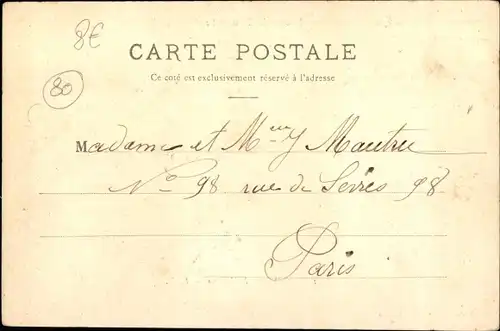 8€
CARTE POSTALE
Ce coté est exclusivement réservé à l'adresse
80
Madame et Meur Mautru
No 98 rue de Sèvres 98
Paris